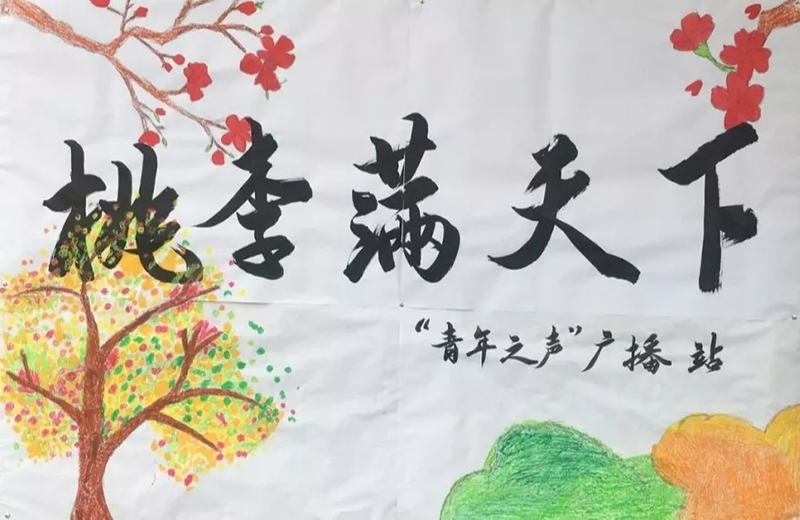 桃李满天下
“青年之声”广播站